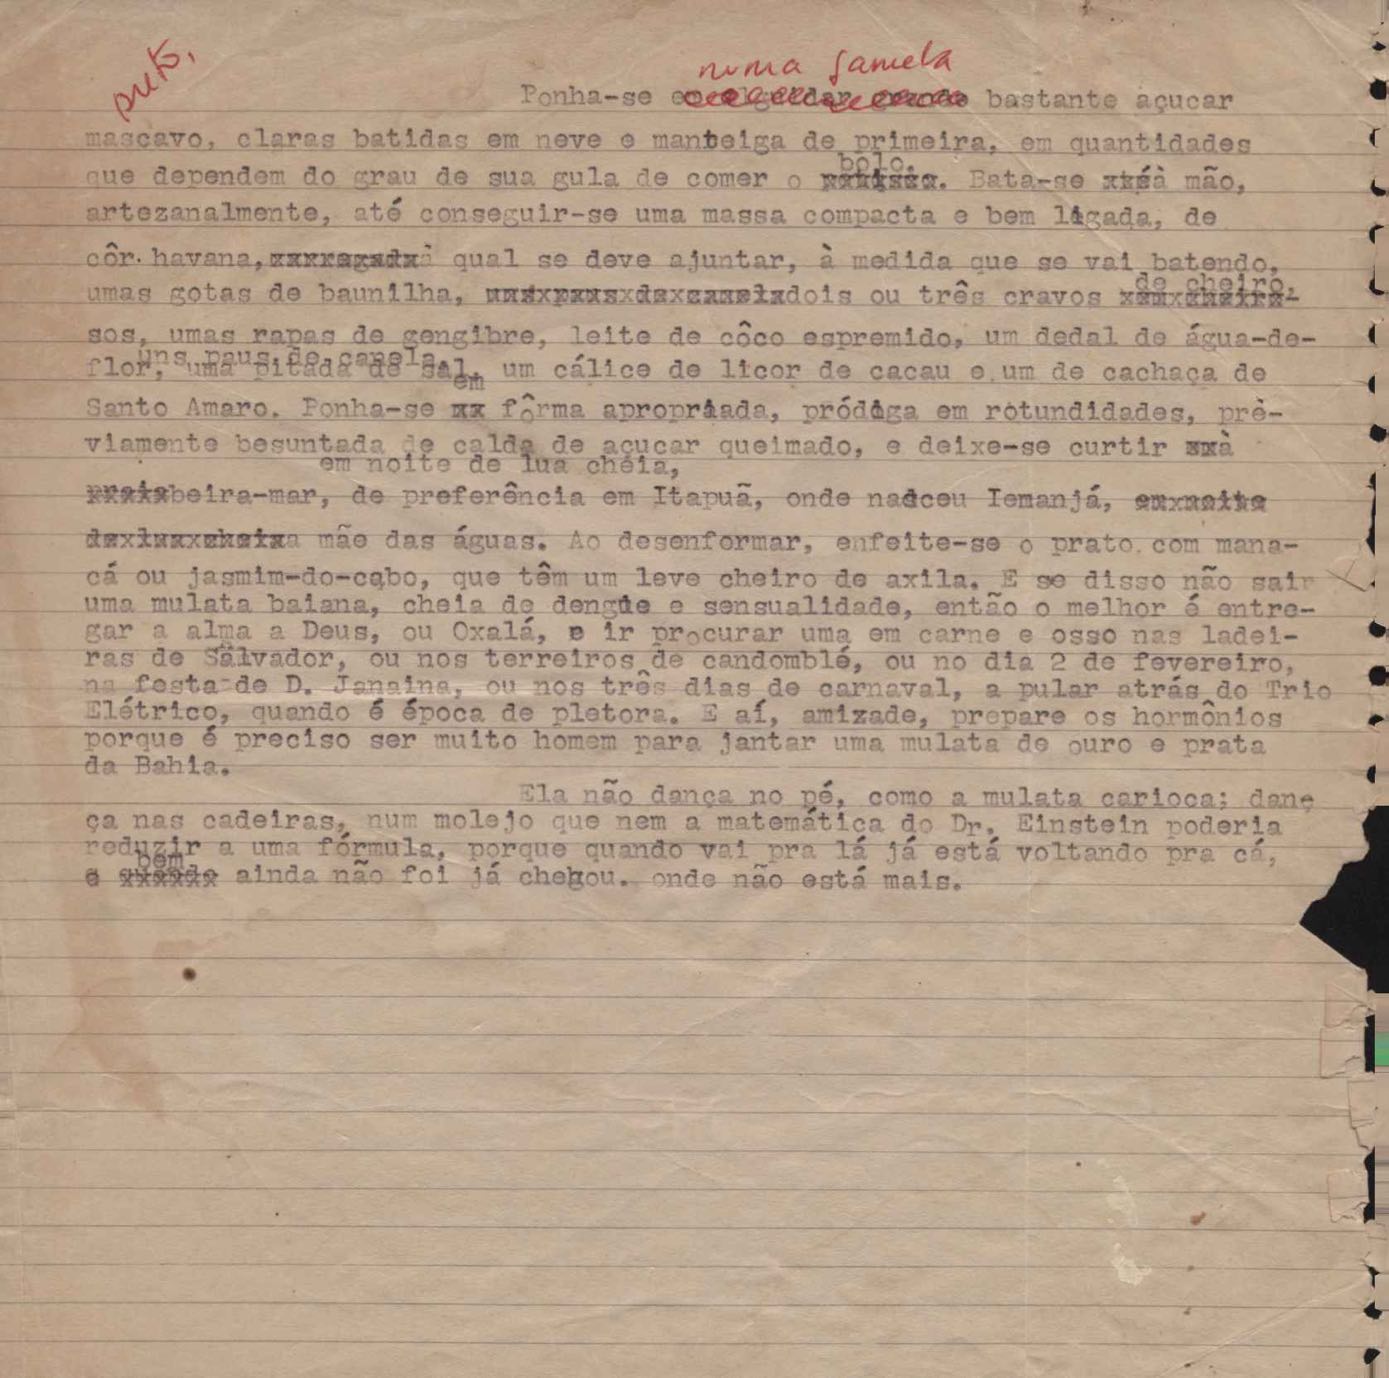 preto,
numa gamela
Ponha-se em alguidar grande bastante açucar
mascavo, claras batidas em neve e manteiga de primeira, em quantidades
bolo.
que dependem do grau de sua gula de comer o . Bata-se à mão,
artezanalmente, até conseguir-se uma massa compacta e bem ligada, de
côr havana, à qual se deve ajuntar, à medida que se vai batendo,
de cheiro,
umas gotas de baunilha, uns paus de canela dois ou três cravos
sos, umas rapas de gengibre, leite de côco espremido, um dedal de água-de-
uns paus de canela,
flor, uma pitada de sal, um cálice de licor de cacau e um de cachaça de
em
Santo Amaro. Ponha-se fôrma apropriada, pródiga em rotundidades, prè-
viamente besuntada de calda de açucar queimado, e deixe-se curtir à
em noite de lua cheia,
praia beira-mar, de preferência em Itapuã, onde nasceu Iemanjá, em noite
de lua cheia a mãe das águas. Ao desenformar, enfeite-se o prato com mana-
cá ou jasmim-do-cabo, que têm um leve cheiro de axila. E se disso não sair
uma mulata baiana, cheia de dengue e sensualidade, então o melhor é entre-
gar a alma a Deus, ou Oxalá, e ir procurar uma em carne e osso nas ladei-
ras de Salvador, ou nos terreiros de candomblé, ou no dia 2 de fevereiro,
na festa de D. Janaina, ou nos três dias de carnaval, a pular atrás do Trio
Elétrico, quando é época de pletora. E aí, amizade, prepare os hormônios
porque é preciso ser muito homem para jantar uma mulata de ouro e prata
da Bahia.
Ela não dança no pé, como a mulata carioca; danç
ça nas cadeiras, num molejo que nem a matemática do Dr. Einstein poderia
reduzir a uma fórmula, porque quando vai pra lá já está voltando pra cá,
bem
e quando ainda não foi já chegou. onde não está mais.